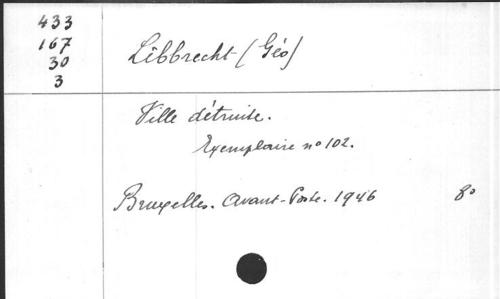 433
167
30
3
Libbrecht (Géo)
Ville détruite.
Exemplaire nº 102.
Bruxelles. Avant-Poste. 1946 8º